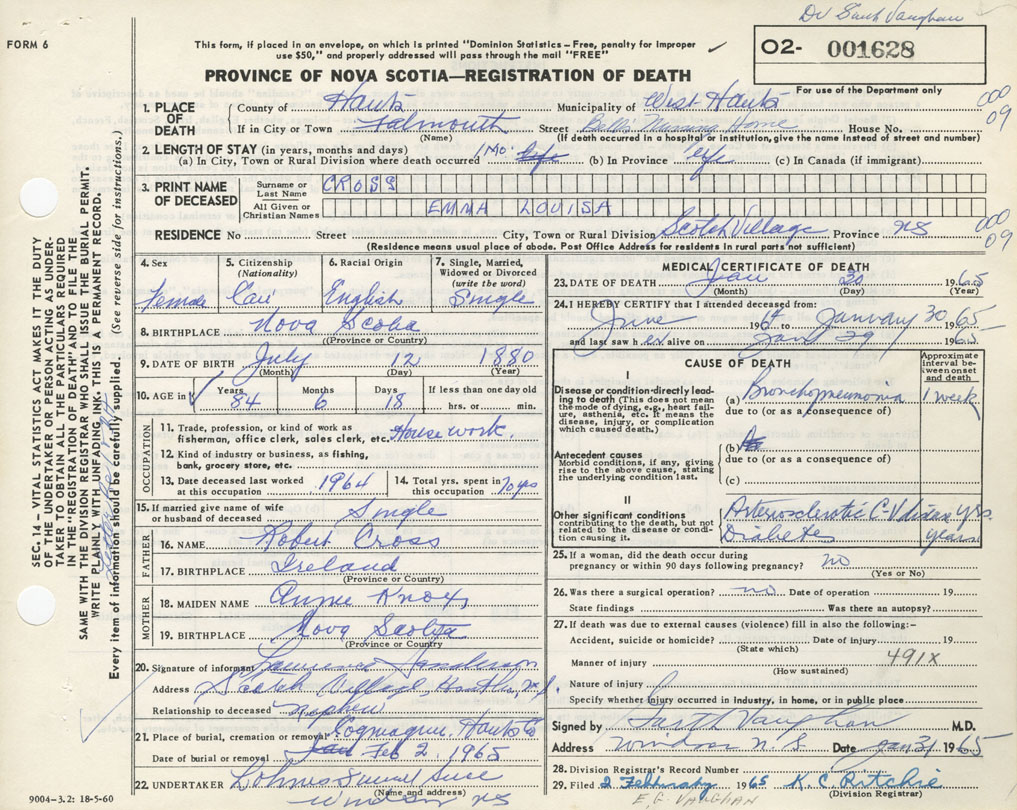 Dr Garth Vaughan
FORM 6
This form, if placed in an envelope, on which is printed "Dominion Statistics – Free, penalty for improper
use $50," and properly addressed will pass through the mail "FREE"
02- 001628
For use of the Department only
PROVINCE OF NOVA SCOTIA—REGISTRATION OF DEATH
1. PLACE OF DEATH
County of Hants Municipality of West Hants
000
09
If in City or Town Falmouth Street Bell's Nursing Home House No.
(Name) (If death occurred in a hospital or institution, give the name instead of street and number)
2. LENGTH OF STAY (in years, months and days)
(a) In City, Town or Rural Division where death occurred 1 Mo. life (b) In Province life (c) In Canada (if immigrant)
3. PRINT NAME OF DECEASED
Surname or Last Name CROSS
All Given or Christian Names EMMA LOUISA
RESIDENCE No Street City, Town or Rural Division Scotch Village Province NS
000
09
(Residence means usual place of abode. Post Office Address for residents in rural parts not sufficient)
4. Sex
Female
5. Citizenship
(Nationality)
Can
6. Racial Origin
English
7. Single, Married,
Widowed or Divorced
(write the word)
Single
8. BIRTHPLACE Nova Scotia
(Province or Country)
9. DATE OF BIRTH July 12 1880
(Month) (Day) (Year)
10. AGE in
Years Months Days If less than one day old
84 6 18 hrs. or min.
OCCUPATION
11. Trade, profession, or kind of work as
fisherman, office clerk, sales clerk, etc. Housework.
12. Kind of industry or business, as fishing,
bank, grocery store, etc.
13. Date deceased last worked
at this occupation 1964
14. Total yrs. spent in
this occupation 70 yrs
15. If married give name of wife
or husband of deceased Single
FATHER
16. NAME Robert Cross
17. BIRTHPLACE Ireland
(Province or Country)
MOTHER
18. MAIDEN NAME Annie Knox
19. BIRTHPLACE Nova Scotia
(Province or Country)
20. Signature of informant Lawrence Sanderson
Address Scotch Village Hants Co, N.S.
Relationship to deceased nephew
21. Place of burial, cremation or removal Cogmagun, Hants Co
Date of burial or removal Jan Feb 2, 1965
22. UNDERTAKER
(Name and address)
Windsor NS
9004-3.2: 18-5-60
MEDICAL CERTIFICATE OF DEATH
23. DATE OF DEATH Jan 30 1965
(Month) (Day) (Year)
24. I HEREBY CERTIFY that I attended deceased from:
June 1964 to January 30 1965
and last saw her alive on Jan 29 1965
CAUSE OF DEATH
Approximate
interval be-
tween onset
and death
I
Disease or condition directly lead-
ing to death (This does not mean
the mode of dying, e.g., heart fail-
ure, asthenia, etc. It means the
disease, injury, or complication
which caused death.)
(a) Bronchopneumonia 1 week
due to (or as a consequence of)
Antecedent causes
Morbid conditions, if any, giving
rise to the above cause, stating
the underlying condition last.
(b)
due to (or as a consequence of)
(c)
II
Other significant conditions
contributing to the death, but not
related to the disease or condi-
tion causing it.
Arteriosclerotic C-V disease yrs.
Diabetes years
25. If a woman, did the death occur during
pregnancy or within 90 days following pregnancy? no
(Yes or No)
26. Was there a surgical operation? no Date of operation 19
State findings Was there an autopsy?
27. If death was due to external causes (violence) fill in also the following:–
Accident, suicide or homicide? Date of injury 19
(State which)
Manner of injury 491X
(How sustained)
Nature of injury
Specify whether injury occurred in industry, in home, or in public place
Signed by Garth Vaughan M.D.
Address Windsor N.S. Date Jan 31 1965
28. Division Registrar's Record Number
29. Filed 2 February 1965 K. C. Ritchie
(Division Registrar)
E.G. VAUGHAN
SEC. 14 – VITAL STATISTICS ACT MAKES IT THE DUTY
OF THE UNDERTAKER OR PERSON ACTING AS UNDER-
TAKER TO OBTAIN ALL THE PARTICULARS REQUIRED
IN THE "REGISTRATION OF DEATH" AND TO FILE THE
SAME WITH THE DIVISION REGISTRAR WHO SHALL ISSUE THE BURIAL PERMIT.
WRITE PLAINLY WITH UNFADING INK. THIS IS A PERMANENT RECORD.
Every item of information should be carefully supplied. (See reverse side for instructions.)